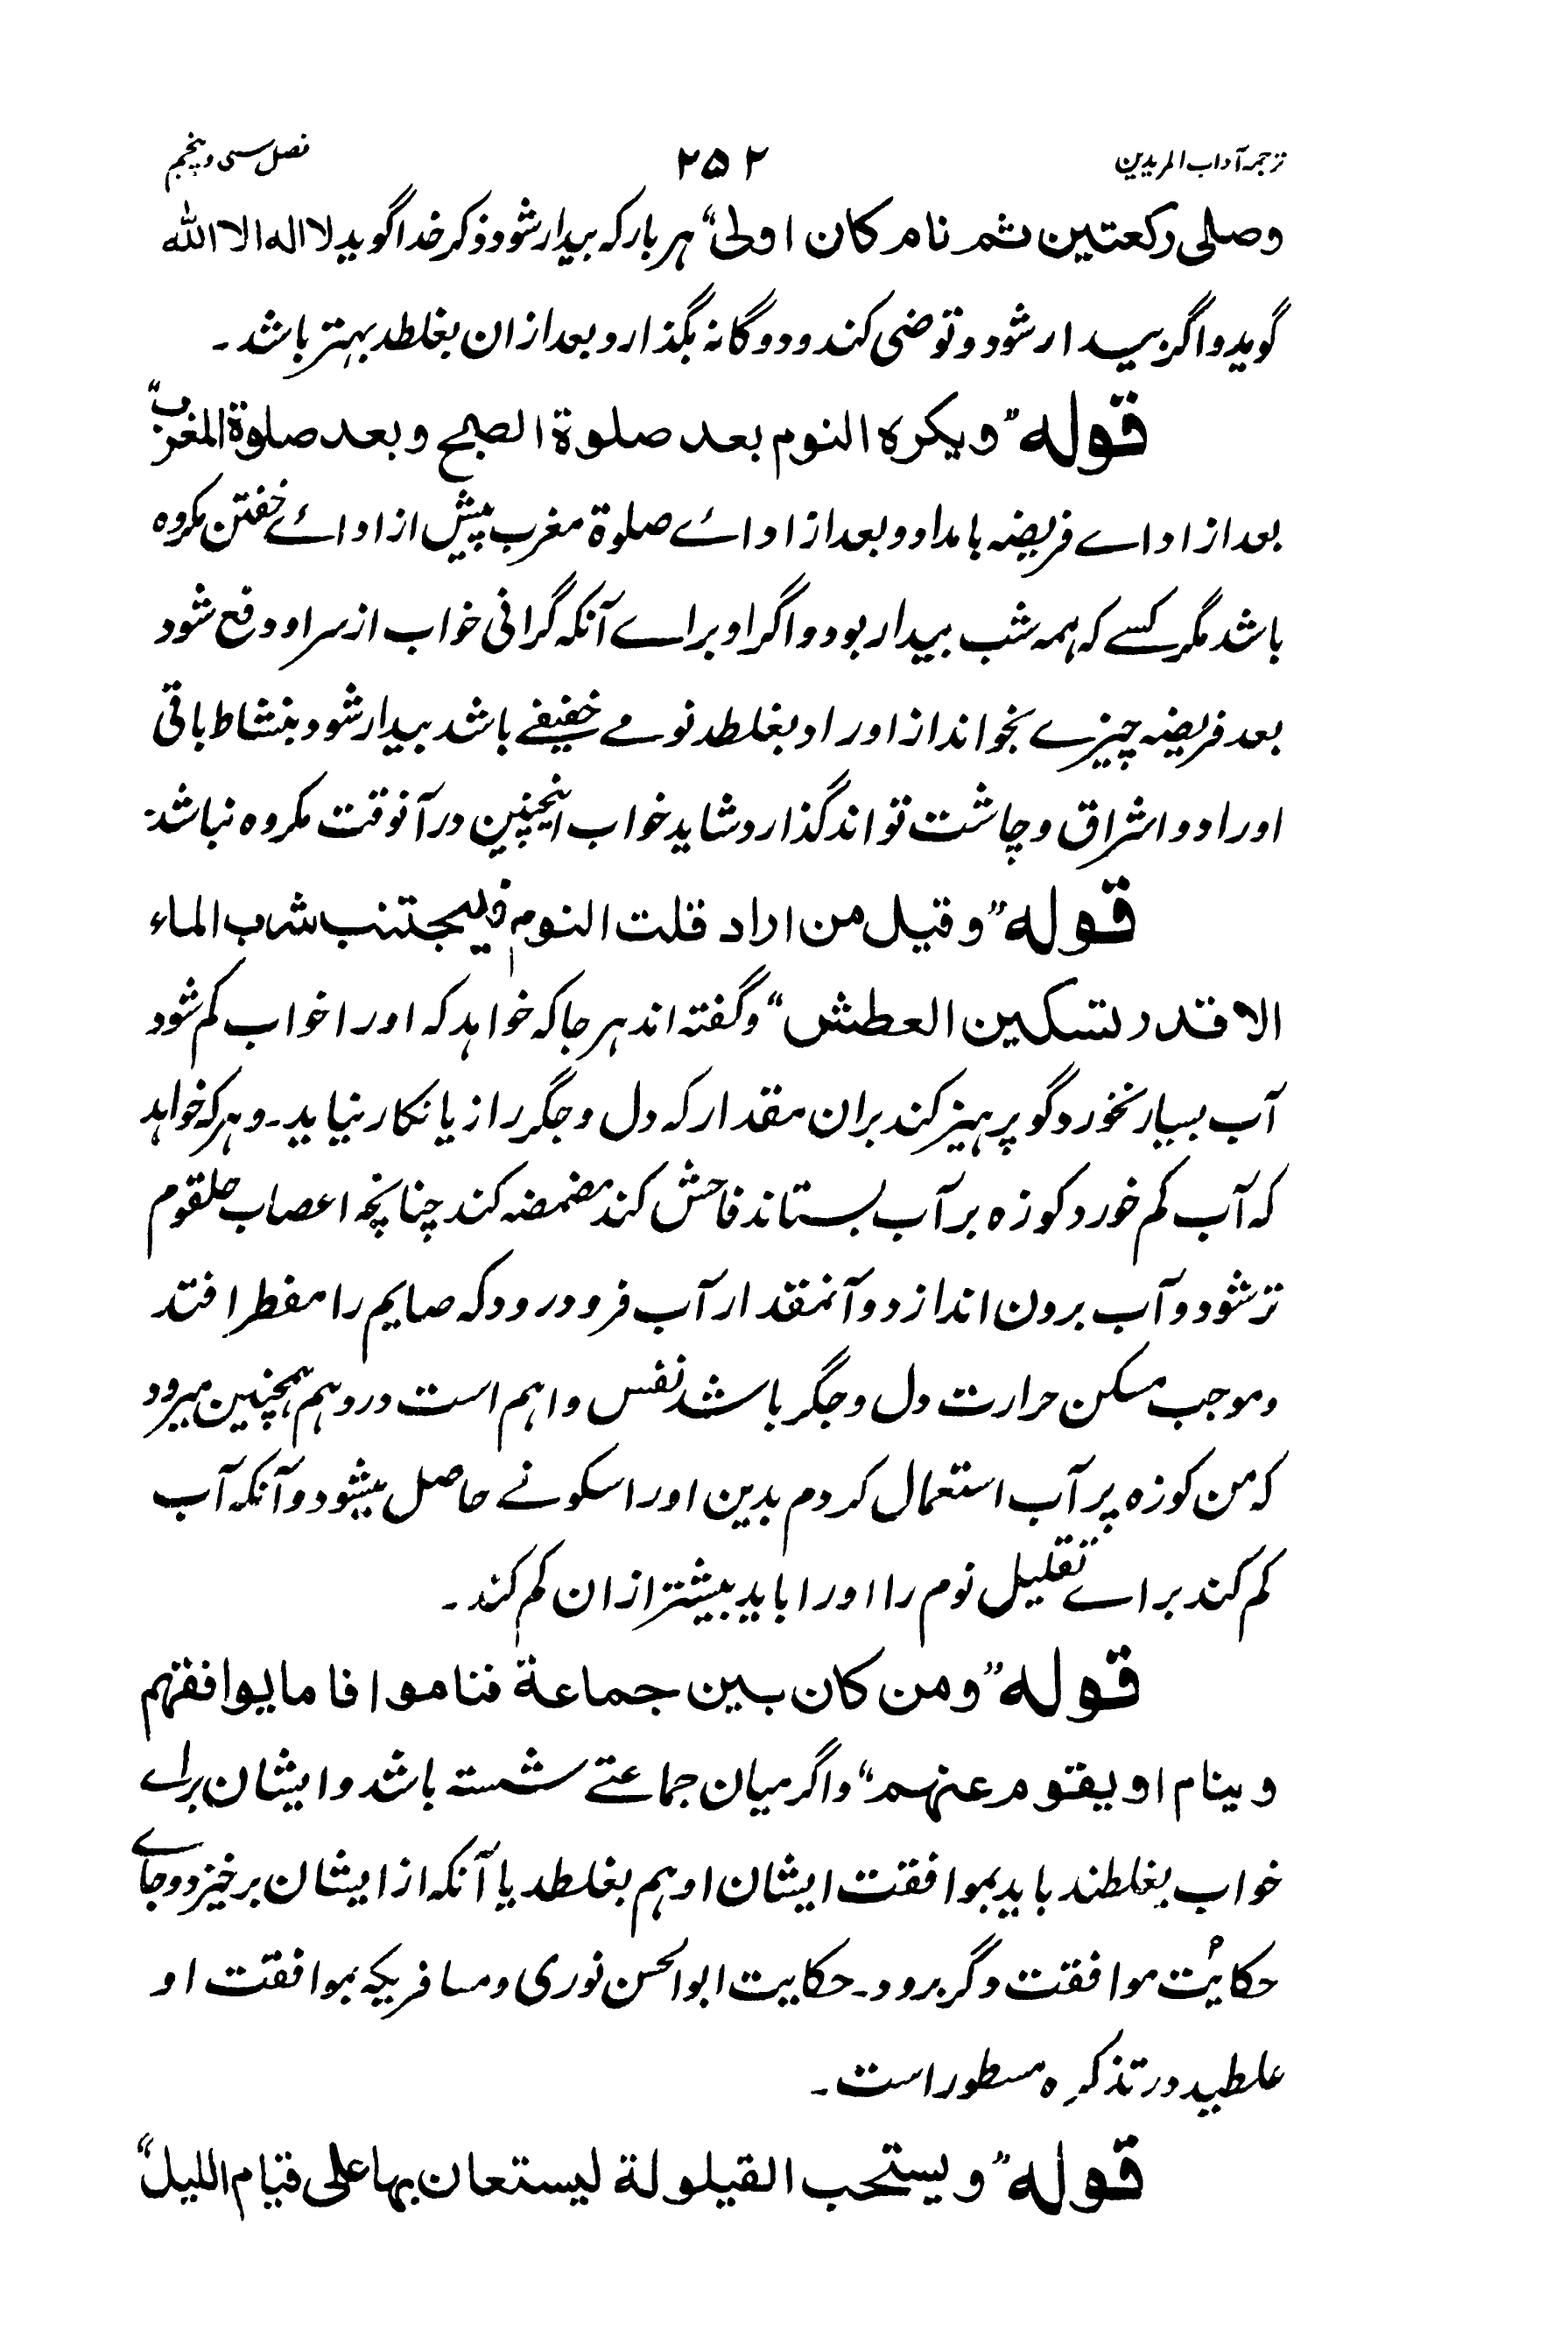 ترجمہ آداب المریدین ۲۵۲ فصل سی و پنجم
وصلی رکعتین ثم نام کان اولیٰ“ ہر بار کہ بیدار شود ذکر خدا گوید لا الہ الا اللہ
گوید و اگر بیدار شود و توضی کند و دوگانہ بگذارد و بعد ازان بغلطد بہتر باشد۔
قولہ ”ویکرہ النوم بعد صلوة الصبح وبعد صلوة المغرب“
بعد از اداے فریضہ بامداد و بعد از اداۓ صلوة مغرب پیش از اداۓ خفتن مکروہ
باشد مگر کسے کہ ہمہ شب بیدار بود و اگر او براے آنکہ گرانی خواب از سر او دفع شود
بعد فریضہ چیزے بخواند از اوراد بغلطد نومے خفیفے باشد بیدار شود بنشاط باقی
اوراد و اشراق و چاشت تواند گذارد شاید خواب اینچنین در آنوقت مکروہ نباشد۔
قولہ ”وقیل من اراد قلت النوم فلیجتنب شرب الماء
الا قدر لتسکین العطش“ و گفتہ اند ہر جا کہ خواہد کہ او را خواب کم شود
آب بسیار نخورد گو پرہیز کند بران مقدار کہ دل و جگر را زیانکار نیاید۔ و ہر کہ خواہد
کہ آب کم خورد کوزہ بر آب بستاند فاحش کند مضمضہ کند چنانچہ اعصاب حلقوم
تر شود و آب برون اندازد و آنمقدار آب فرو در رود کہ صایم را مفطر افتد
و موجب مسکن حرارت دل و جگر باشد نفس واہم است در وہم ہمچنین میرود
کہ من کوزہ پر آب استعمال کردم بدین او را سکونے حاصل میشود و آنکہ آب
کم کند براے تقلیل نوم را او را باید بیشتر ازان کم کند۔
قولہ ”ومن کان بین جماعة فناموا فاما یوافقہم
وینام او یقوم عنہم“ و اگر میان جماعتے شستہ باشد و ایشان براے
خواب بغلطند باید بموافقت ایشان او ہم بغلطد یا آنکہ از ایشان برخیزد و جاے
حکایت موافقت دگر برود۔ حکایت ابوالحسن نوری و مسافریکہ بموافقت او
غلطید در تذکرہ مسطور است۔
قولہ ”ویستحب القیلولة لیستعان بہا علی قیام اللیل“